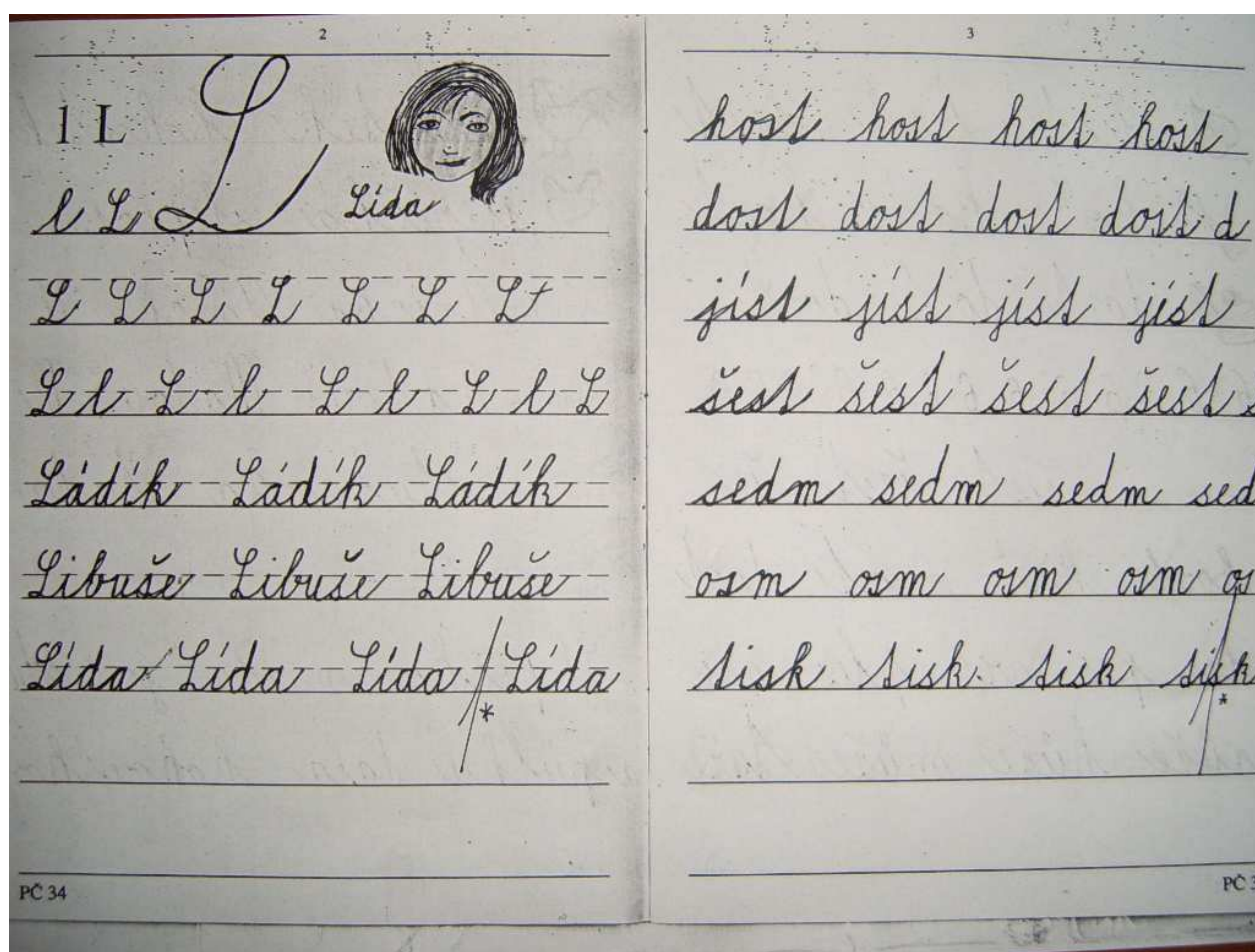 2
l L L
l L Lída
L L L L L L L t
L l L l L l L l L
Ládík Ládík Ládík
Libuše Libuše Libuše
Lída Lída Lída Lída
*
PČ 34
3
host host host host
dost dost dost dost d
jíst jíst jíst jíst
šest šest šest šest
sedm sedm sedm sed
osm osm osm osm os
tisk tisk tisk tisk
*
PČ 3